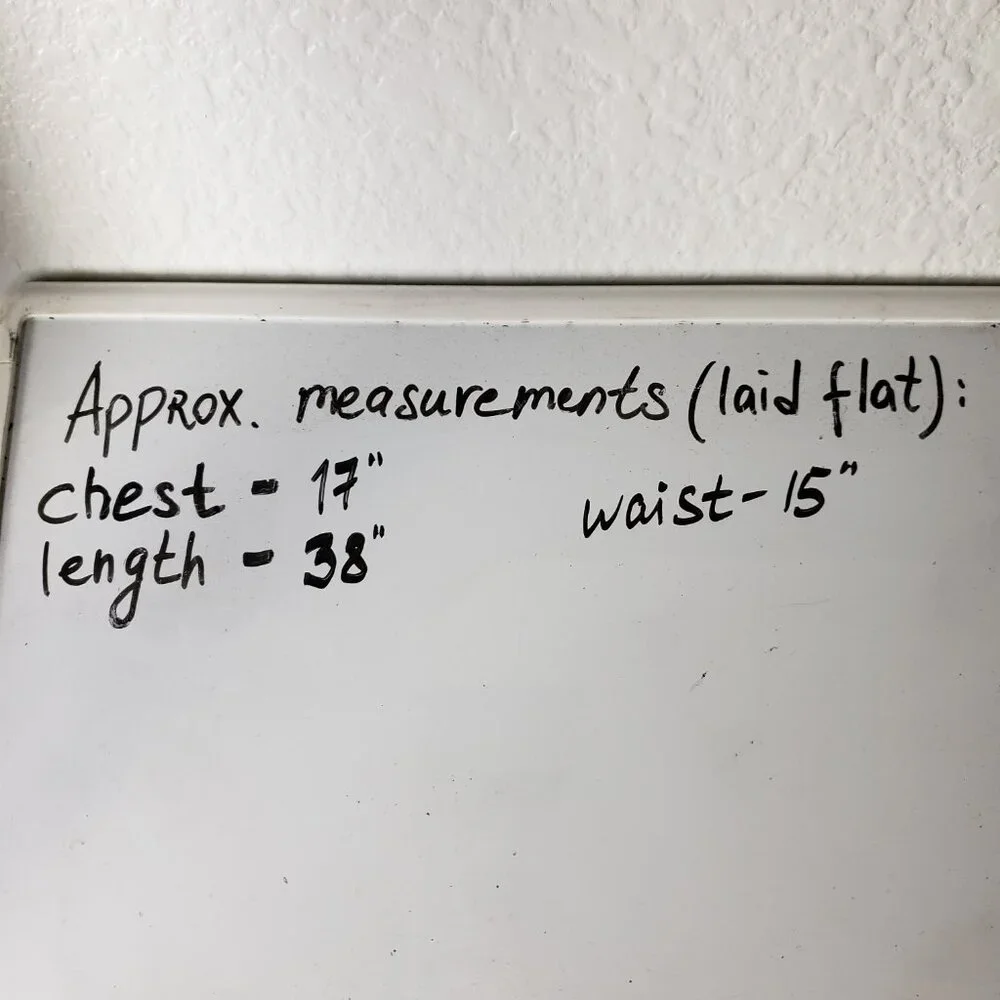 Approx. measurements (laid flat):
chest - 17" waist - 15"
length - 38"